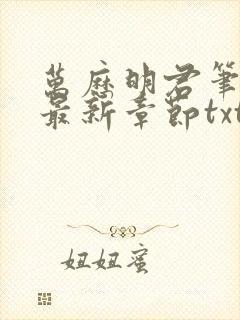 萬历明君筆
最新章節txt
妞妞蜜